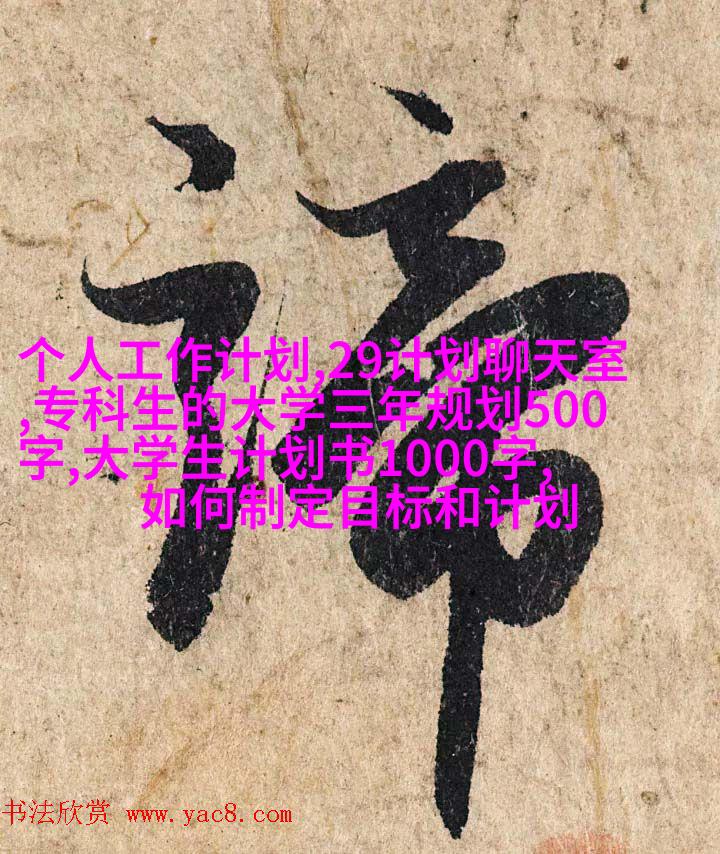 谛
个人工作计划,29计划聊天室
,专科生的大学三年规划500
字,大学生计划书1000字,
如何制定目标和计划
书法欣赏 www.yac8.com